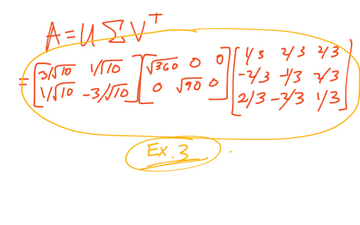 A = U Σ V^T
= [3/√10 1/√10; 1/√10 -3/√10] [√360 0 0; 0 √90 0] [1/3 2/3 2/3; -2/3 -1/3 2/3; 2/3 -2/3 1/3]
Ex. 3